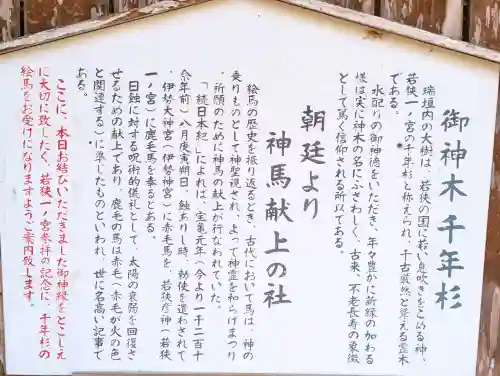 御神木千年杉
瑞垣内の大樹は、若狭の国に若い息吹きをこめる神、
若狭一ノ宮の千年杉と称えられ、千古毅然と聳える霊木
である。
水配りの御神徳をいただき、年々豊かに新緑の加わる
様は実に神木の名にふさわしく、古来、不老長寿の象徴
として篤く信仰される所以である。
朝廷より
神馬献上の社
絵馬の歴史を振り返るとき、古代において馬は、神の
乗りものとして神聖視され、よって神霊を和らげまつり
、祈願のために神馬の献上が行なわれていた。
「続日本紀」によれば、宝亀元年(今より一千二百十
余年前)八月庚寅朔日、蝕ありし時、勅使を遣わされて
、伊勢大神宮(伊勢神宮)に赤毛馬を、若狭彦神(若狭
一ノ宮)に鹿毛馬を奉るとある。
日蝕に対する呪術的儀礼として、太陽の衰弱を回復さ
せるための献上であり、鹿毛の馬は赤毛(赤毛が火の色
と関連する)に準したものといわれ、世に名高い記事で
ある。
ここに、本日お結びいただきました御神縁をとこしえ
に大切に致したく、若狭一ノ宮参拝の記念に、千年杉の
絵馬をお受けになりますようご案内致します。